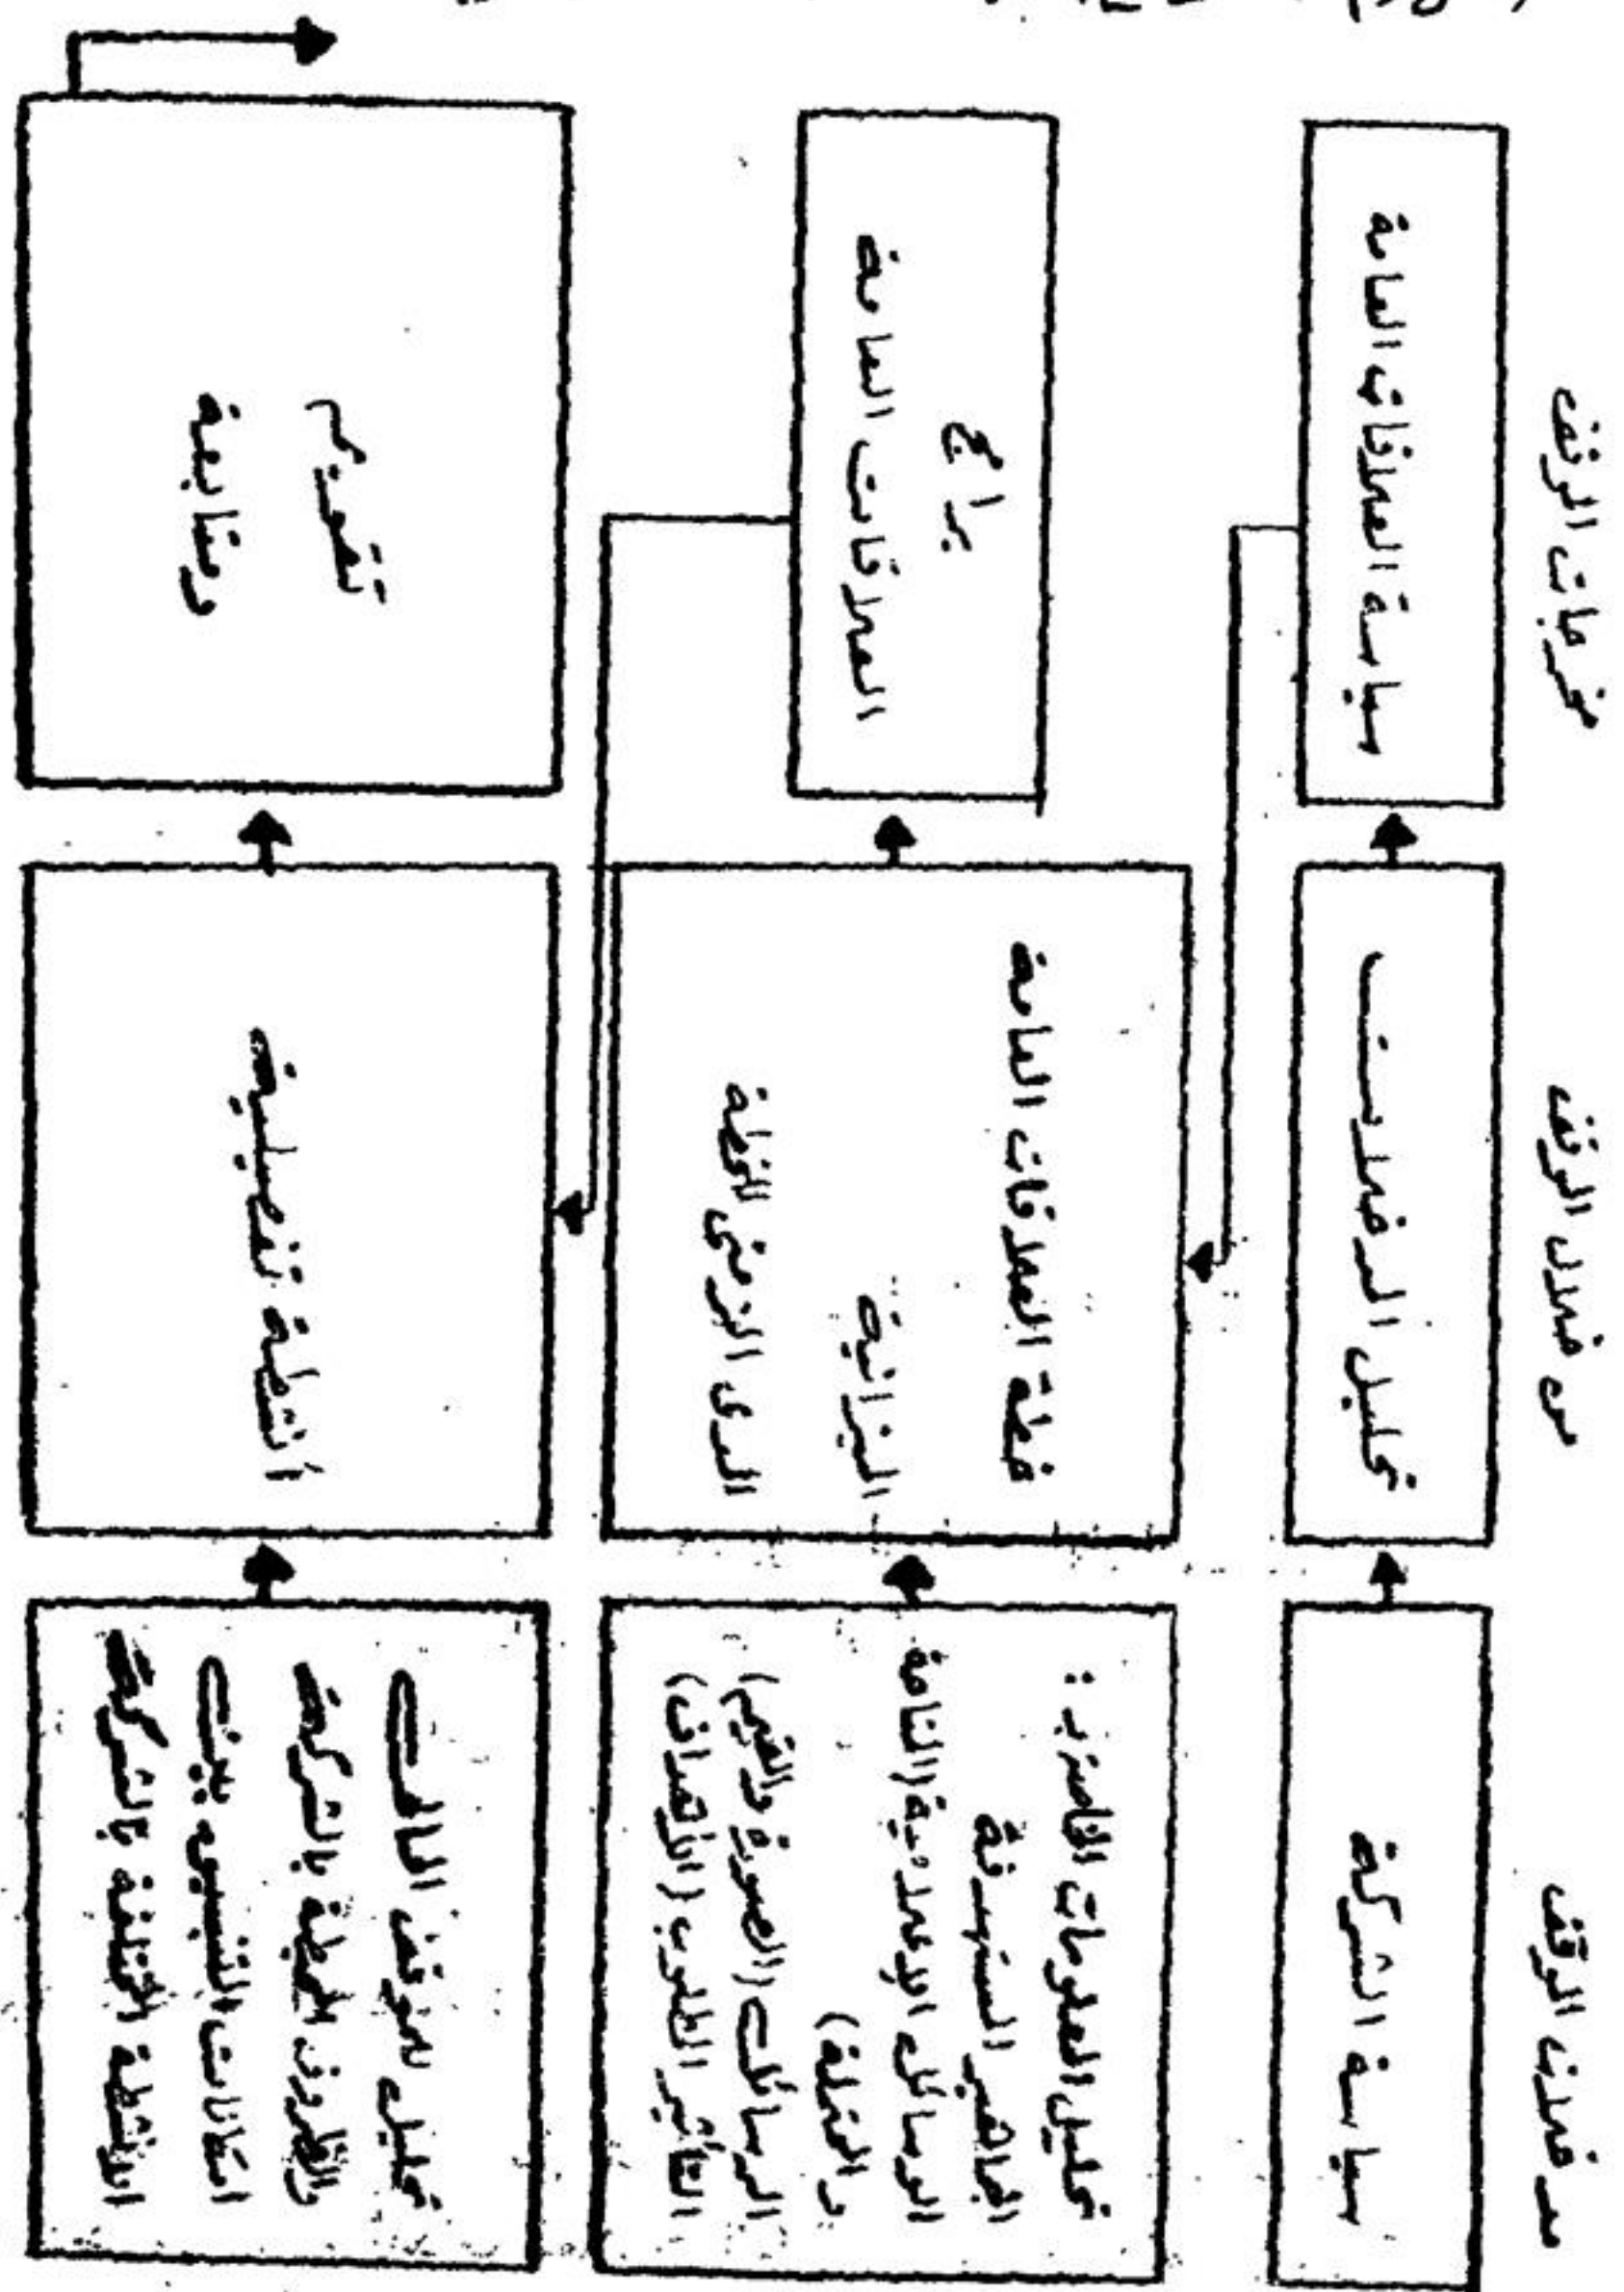 مدخلات الموقف
من خلال الموقف
مخرجات الموقف
سياسة الشركة
تحليل المدخلات
سياسة العلاقات العامة
تحليل المعلومات الخاصة بـ :
الجماهير المستهدفة
الوسائل الإعلامية (المتاحة
و المحتملة)
الرسائل (الصورة والقيم)
التأثير المطلوب (الأهداف)
خطة العلاقات العامة
الميزانية
المدى الزمنى للخطة
برامج
العلاقات العامة
تحليل للموقف الحالى
والظروف المحيطة بالشركة
امكانات التنسيق بين
الأنشطة المختلفة بالشركة
أنشطة تفصيلية
تقويم
ومتابعة